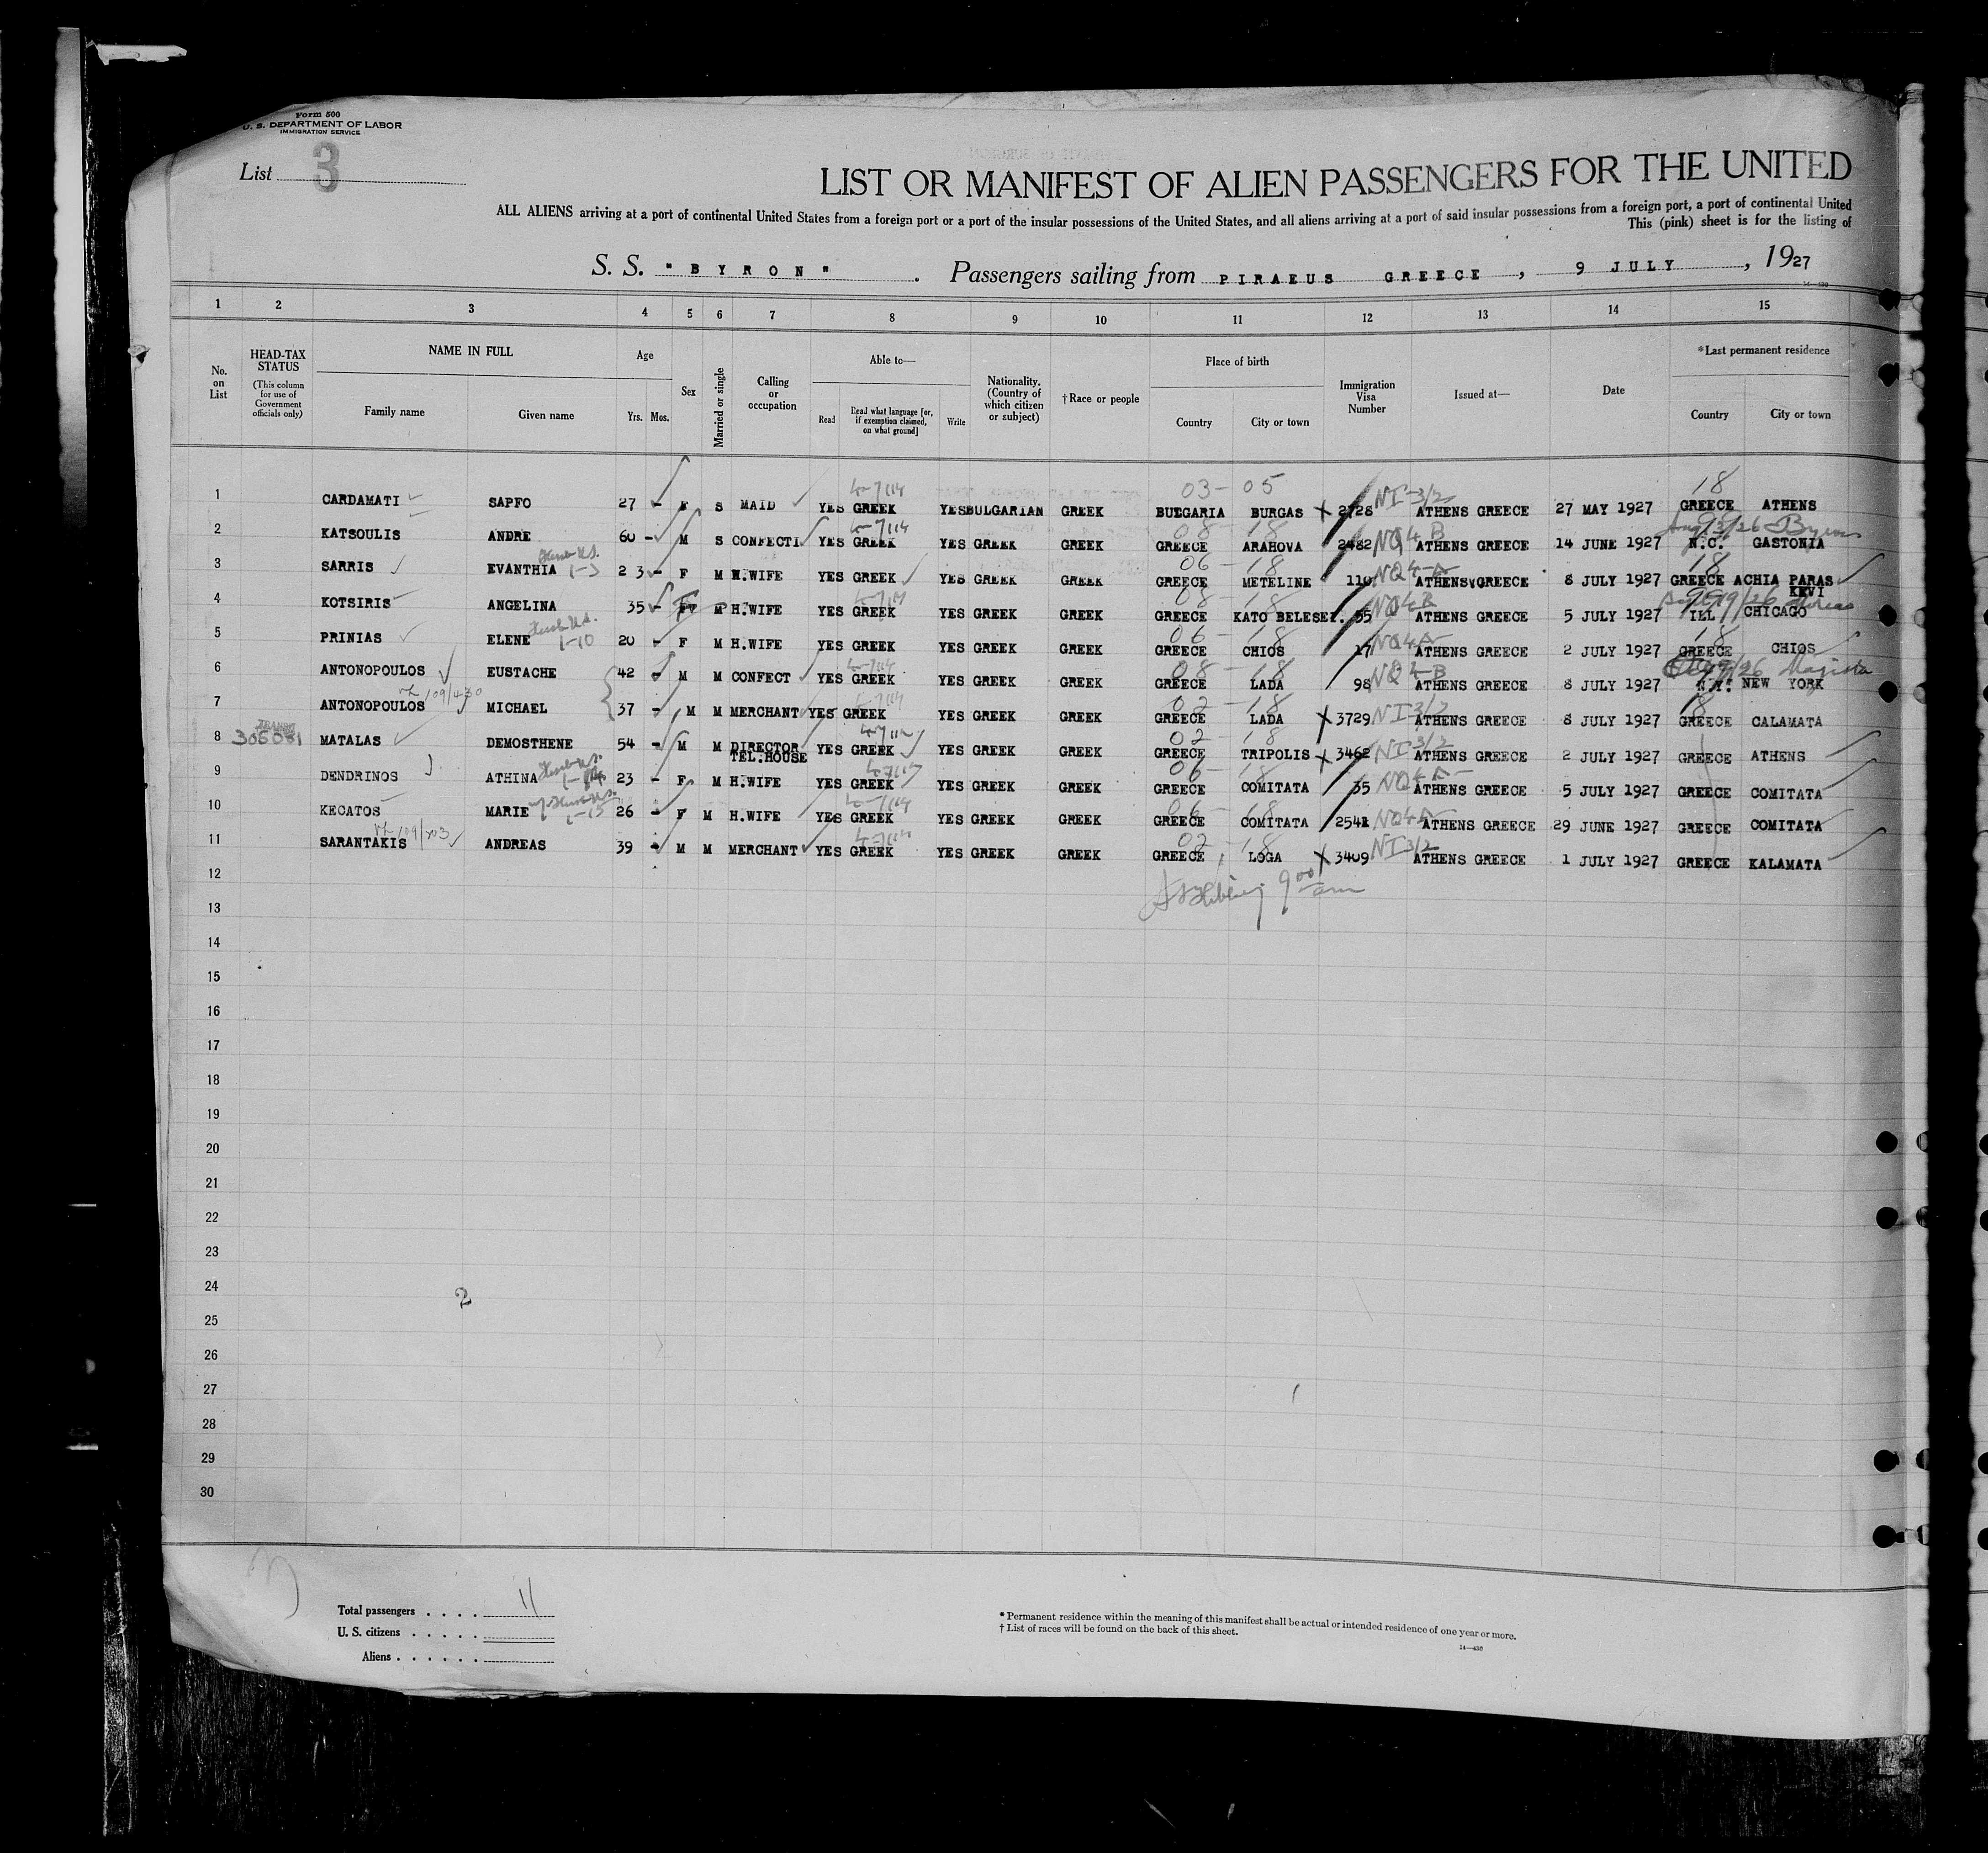 Form 500
U. S. DEPARTMENT OF LABOR
IMMIGRATION SERVICE
List 3
LIST OR MANIFEST OF ALIEN PASSENGERS FOR THE UNITED
ALL ALIENS arriving at a port of continental United States from a foreign port or a port of the insular possessions of the United States, and all aliens arriving at a port of said insular possessions from a foreign port, a port of continental United
This (pink) sheet is for the listing of
S. S. "BYRON". Passengers sailing from PIRAEUS GREECE, 9 JULY, 1927
1 2 3 4 5 6 7 8 9 10 11 12 13 14 15
No. on List
HEAD-TAX STATUS (This column for use of Government officials only)
NAME IN FULL
Family name Given name
Age
Yrs. Mos.
Sex
Married or single
Calling or occupation
Able to—
Read Read what language [or, if exemption claimed, on what ground] Write
Nationality. (Country of which citizen or subject)
†Race or people
Place of birth
Country City or town
Immigration Visa Number
Issued at—
Date
*Last permanent residence
Country City or town
03-05 NI-3/2 18
1 CARDAMATI SAPFO 27 - F S MAID YES GREEK YES BULGARIAN GREEK BULGARIA BURGAS 2728 ATHENS GREECE 27 MAY 1927 GREECE ATHENS
08-18 NQ4-B
2 KATSOULIS ANDRE 60 - M S CONFECTI YES GREEK YES GREEK GREEK GREECE ARAHOVA 2482 ATHENS GREECE 14 JUNE 1927 N.C. GASTONIA
06-18 NQ4-A 18
3 SARRIS EVANTHIA 23 - F M H.WIFE YES GREEK YES GREEK GREEK GREECE METELINE 110 ATHENS GREECE 8 JULY 1927 GREECE ACHIA PARASKEVI
08-18 NQ4B
4 KOTSIRIS ANGELINA 35 - F M H.WIFE YES GREEK YES GREEK GREEK GREECE KATO BELESEI. 55 ATHENS GREECE 5 JULY 1927 ILL. CHICAGO
06-18 NQ4A 18
5 PRINIAS ELENE 20 - F M H.WIFE YES GREEK YES GREEK GREEK GREECE CHIOS 17 ATHENS GREECE 2 JULY 1927 GREECE CHIOS
08-18 NQ4-B
6 ANTONOPOULOS EUSTACHE 42 - M M CONFECT YES GREEK YES GREEK GREEK GREECE LADA 98 ATHENS GREECE 8 JULY 1927 N.Y. NEW YORK
02-18 NI-3/2 18
7 ANTONOPOULOS MICHAEL 37 - M M MERCHANT YES GREEK YES GREEK GREEK GREECE LADA 3729 ATHENS GREECE 8 JULY 1927 GREECE CALAMATA
02-18 NI-3/2
8 MATALAS DEMOSTHENE 54 - M M DIRECTOR TEL.HOUSE YES GREEK YES GREEK GREEK GREECE TRIPOLIS 3462 ATHENS GREECE 2 JULY 1927 GREECE ATHENS
06-18 NQ4A
9 DENDRINOS ATHINA 23 - F M H.WIFE YES GREEK YES GREEK GREEK GREECE COMITATA 35 ATHENS GREECE 5 JULY 1927 GREECE COMITATA
06-18 NQ4A
10 KECATOS MARIE 26 - F M H.WIFE YES GREEK YES GREEK GREEK GREECE COMITATA 2541 ATHENS GREECE 29 JUNE 1927 GREECE COMITATA
02-18 NI3/2
11 SARANTAKIS ANDREAS 39 - M M MERCHANT YES GREEK YES GREEK GREEK GREECE LOGA 3409 ATHENS GREECE 1 JULY 1927 GREECE KALAMATA
12
13
14
15
16
17
18
19
20
21
22
23
24
25
26
27
28
29
30
2
Total passengers . . . . 11
U. S. citizens . . . . .
Aliens . . . . . .
* Permanent residence within the meaning of this manifest shall be actual or intended residence of one year or more.
† List of races will be found on the back of this sheet.